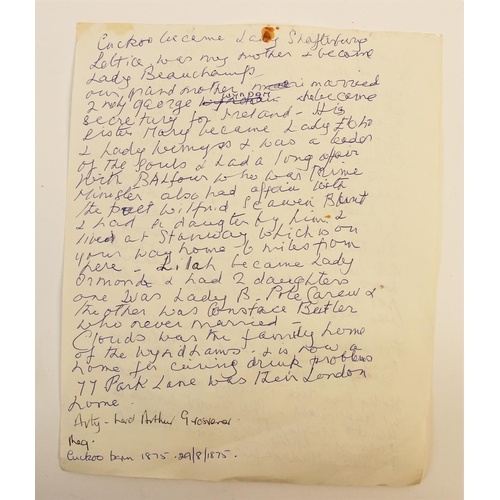 Cuckoo became Lady Shaftsbury
Lettice was my mother & became
Lady Beauchamp
our grandmother married
2ndly George Wyndam he became
secretary for Ireland - His
sister Mary became Lady Elcho
& Lady Wemyss & was a leader
of the Souls & had a long affair
with Balfour who was Prime
Minister also had affair with
the poet Wilfrid Scawen Blunt
& had a daughter by him &
lived at Stanway which is on
your way home - 6 miles from
here - Lilah became Lady
Ormonde & had 2 daughters
one was Lady B. Pole Carew &
the other was Constace Butler
who never married -
Clouds was the family home
of the Wyndhams. & is now a
home for curing drink problems
77 Park Lane was their London
home.
Arty - Lord Arthur Grosvenor
Meg.
Cuckoo born 1875. 29/8/1875.